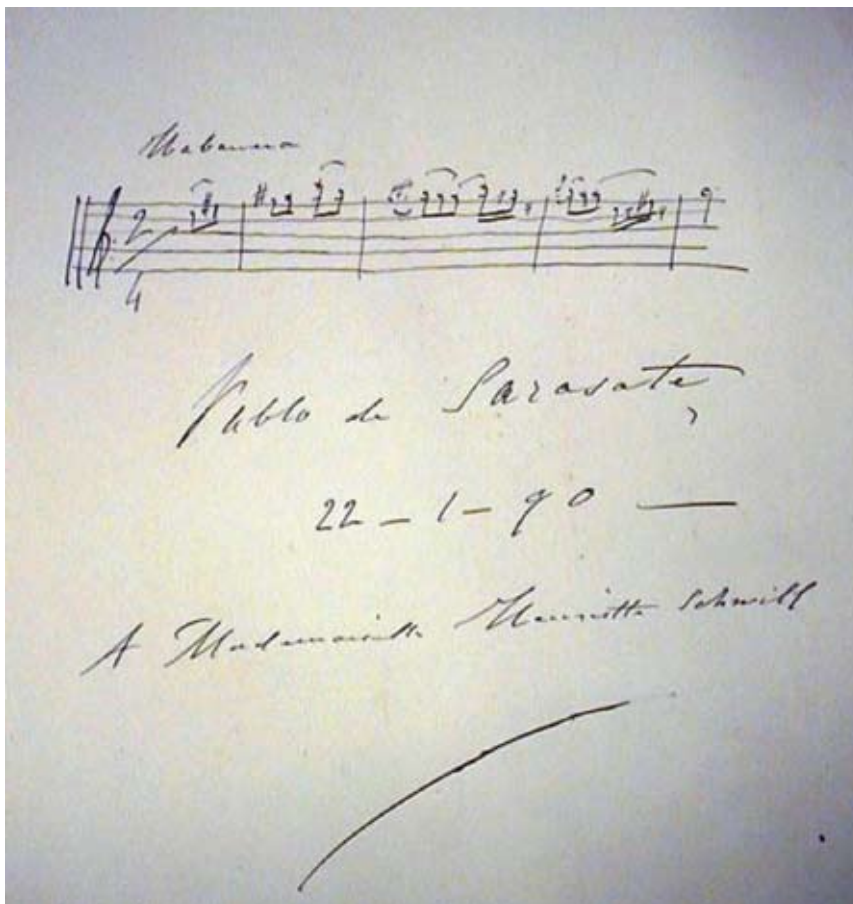 Habanera
2
4
Pablo de Sarasate
22 – 1 – 90 —
A Mademoiselle Henriette Schwill